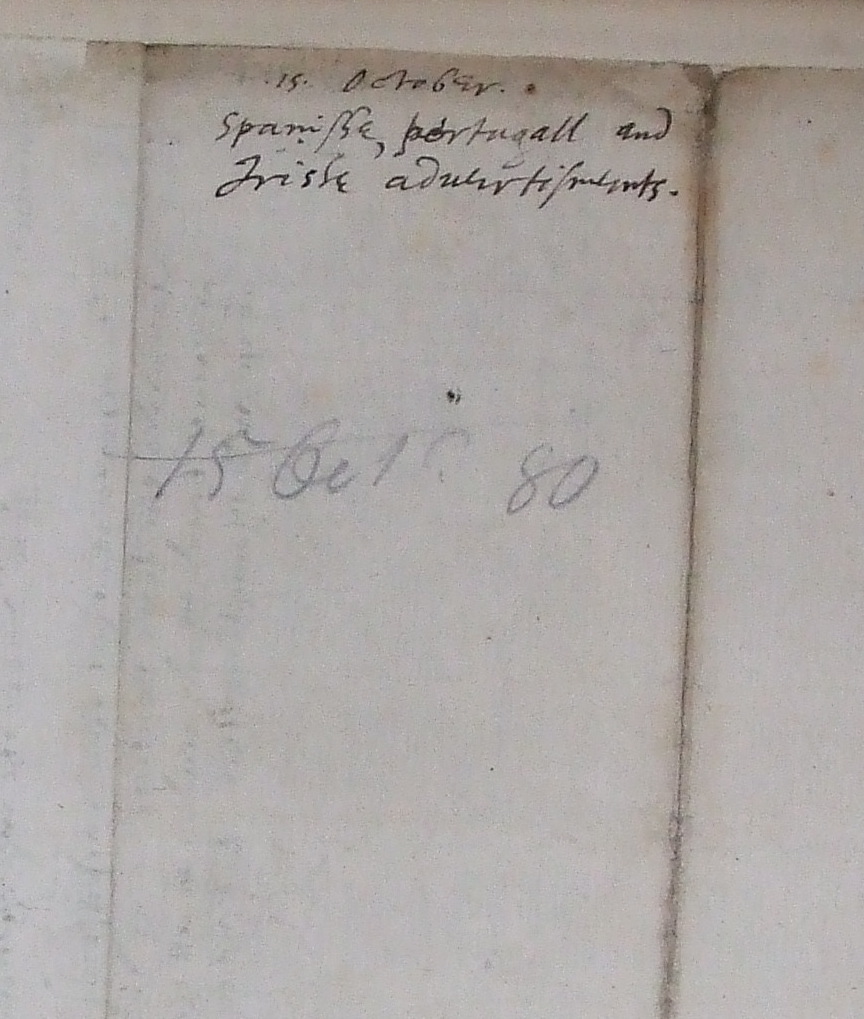 15. October.
Spanisse, portugall and
Irisse aduertisments.
15 Oct^r 80